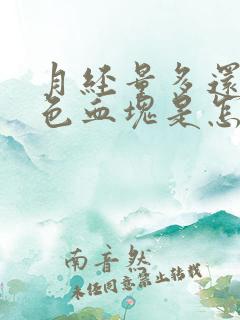 月经量多还
色血块是怎
南音然
未经同意禁止转载